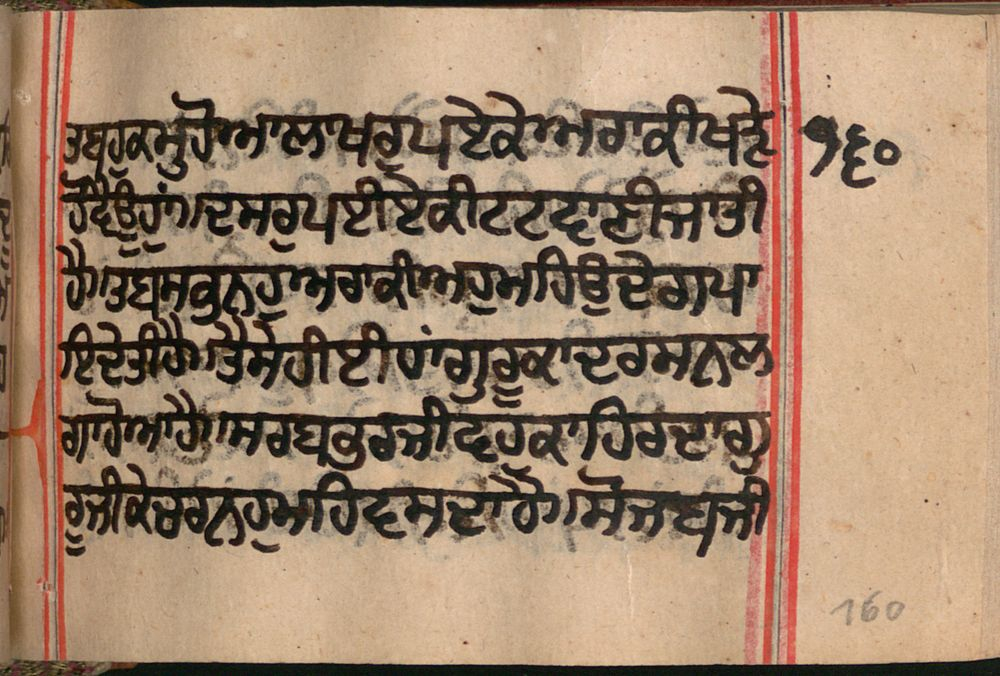 ਤਬਹੁਕਮੁਹੋਆਲਾਖਰੁਪਏਕੇਅਰਾਕੀਖੜੇ ੧੬੦
ਹੋਵੈਉਹਾਂ।ਦਸਰੁਪਈਏਕੀਟਟਵਾਣੀਜਾਤੀ
ਹੈ।ਤਬਸਕੁਨਹੁਅਰਾਕੀਅਹੁਅਹਿਉਦੇਗਪਾ
ਇਦੇਤੀਹੈ।ਤੈਸੇਹੀਈਹਾਂਗੁਰੂਕਾਦਰਸਨਲ
ਗਾਹੋਆਹੈ।ਸਰਬਕੁਰਜੀਵਹੁਕਾਹਿਰਦਾਗੁ
ਰੂਜੀਕੇਚਰਨਹੁਅਹਿਵਸਦਾਹੈ।ਸੋਜਬਜੀ
160